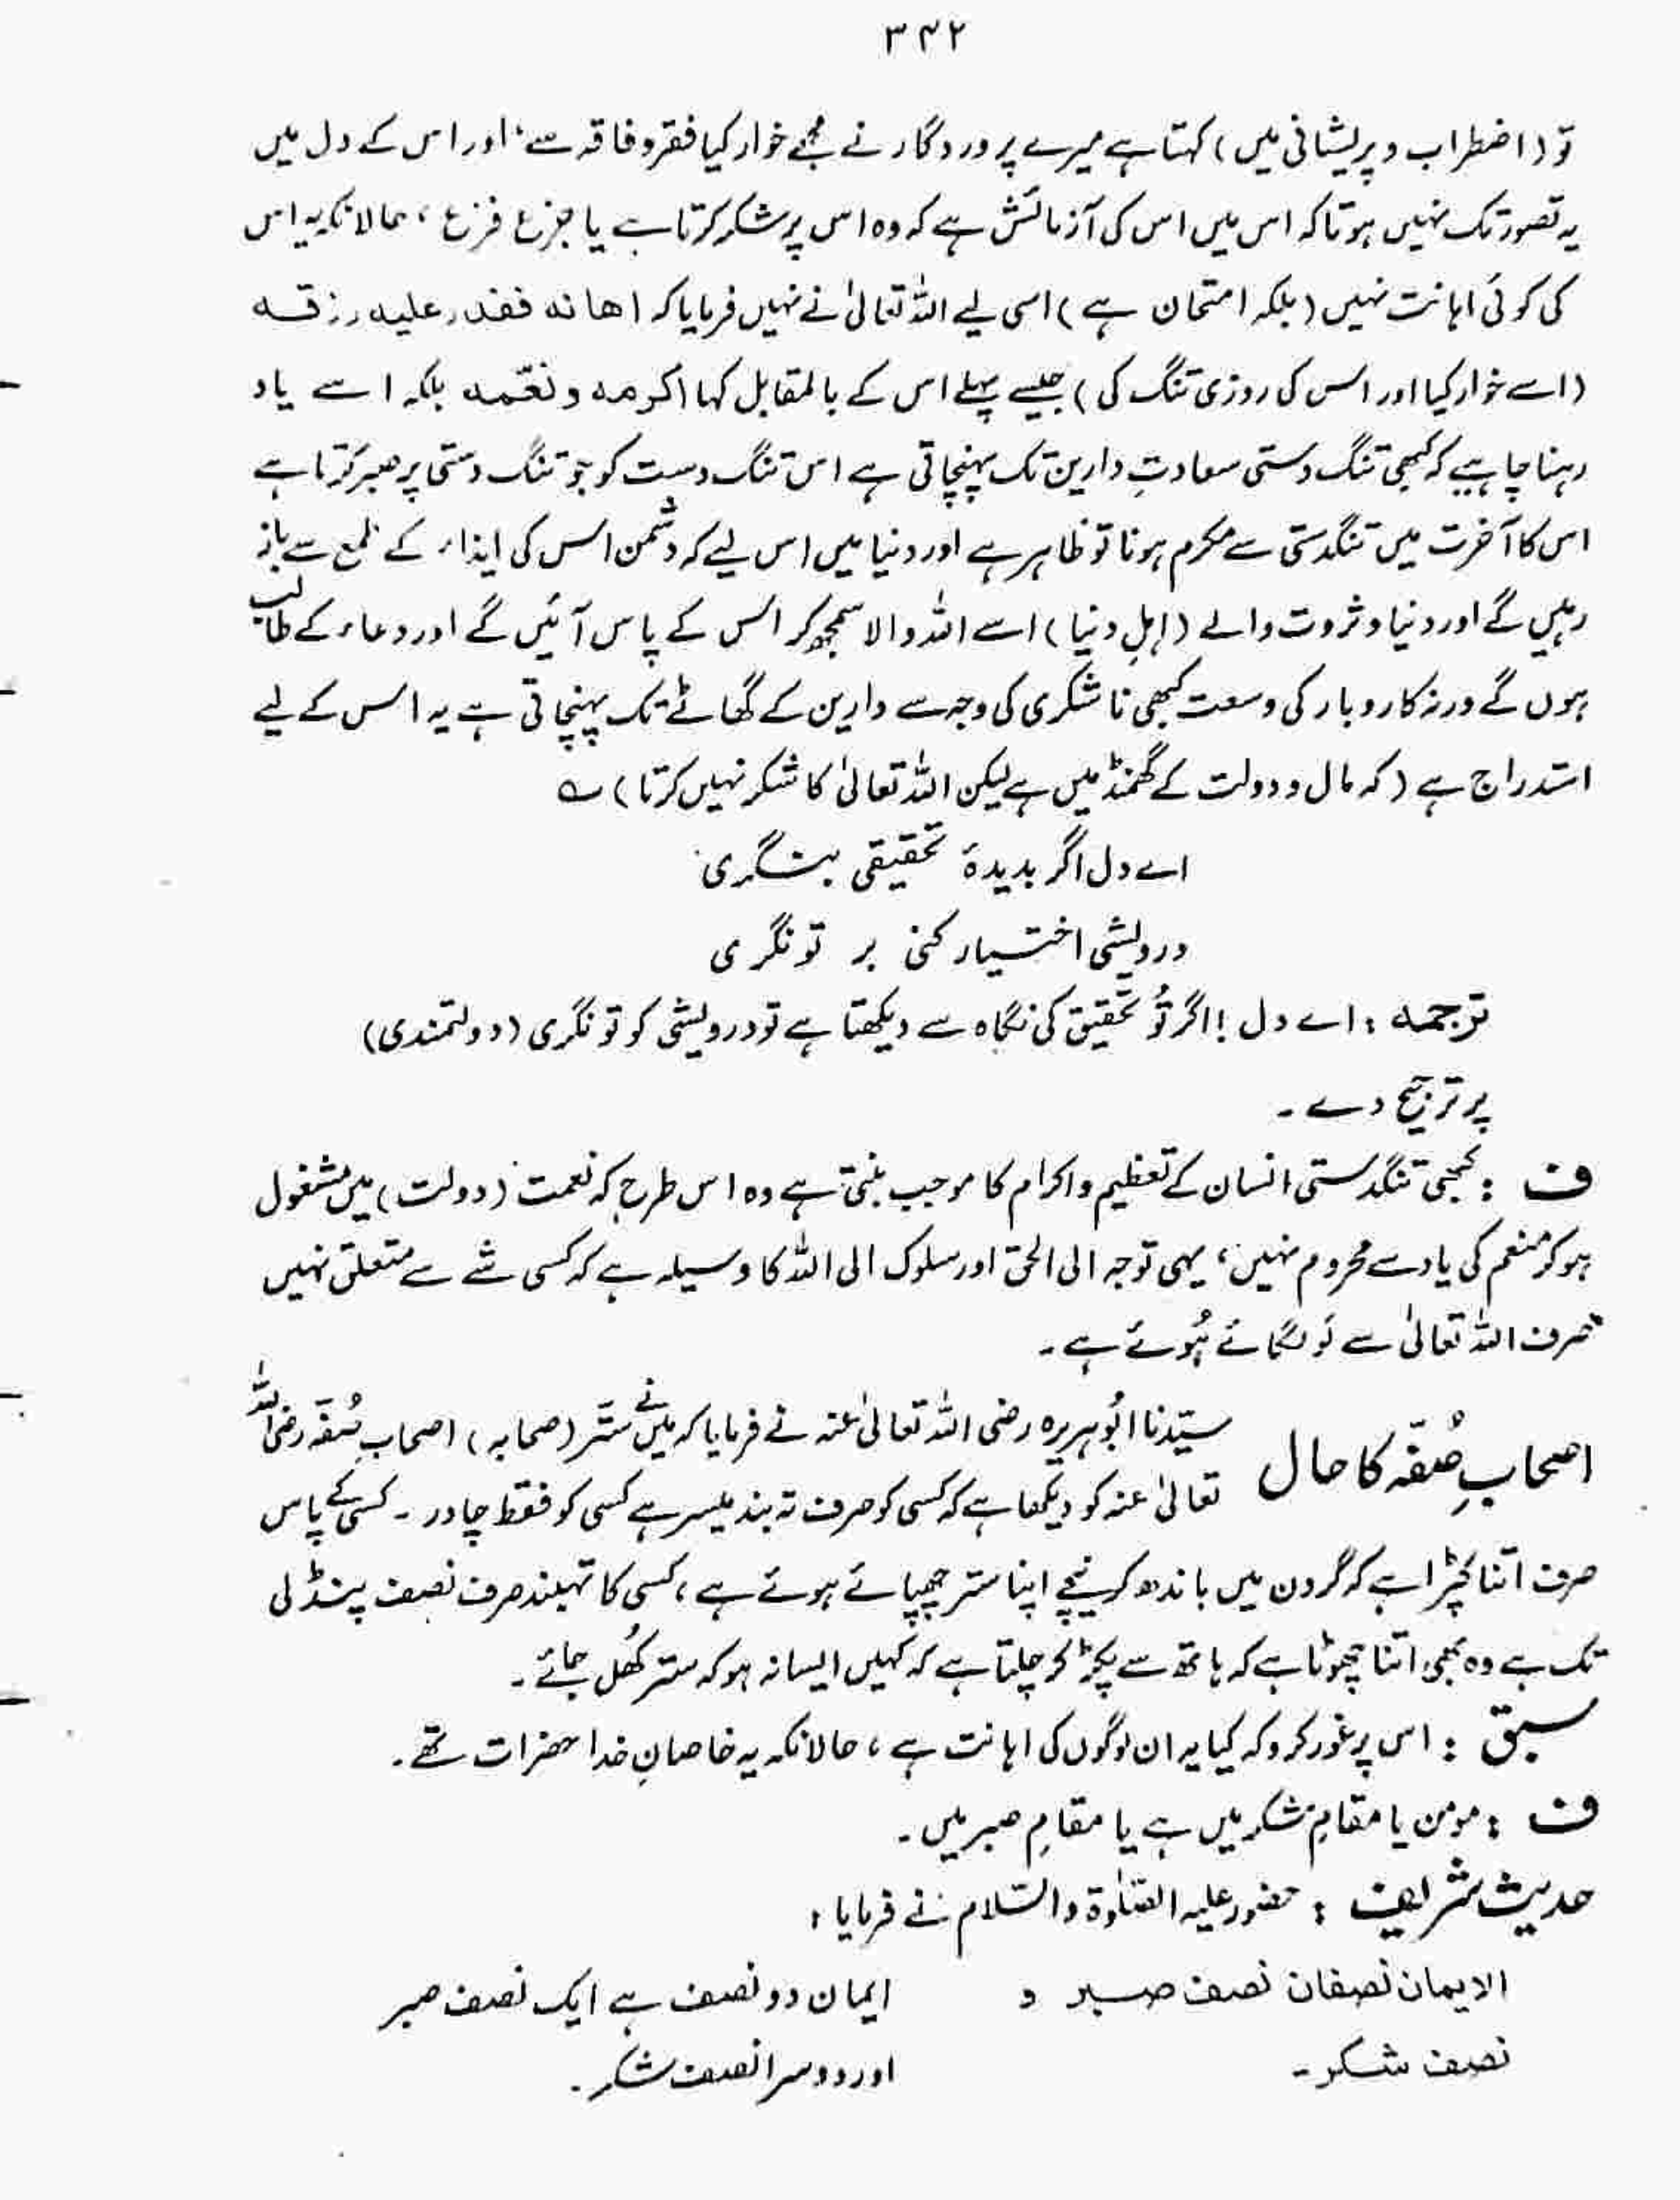 ۳۴۲
تو (اضطراب و پریشانی میں) کہتا ہے میرے پروردگار نے مجھے خوار کیا فقر و فاقہ سے، اور اس کے دل میں
یہ تصور تک نہیں ہوتا کہ اس میں اس کی آزمائش ہے کہ وہ اس پر شکر کرتا ہے یا جزع فزع، حالانکہ یہ اس
کی کوئی اہانت نہیں (بلکہ امتحان ہے) اسی لیے اللہ تعالیٰ نے نہیں فرمایا کہ اھانہ فقدر علیہ رزقہ
(اسے خوار کیا اور اس کی روزی تنگ کی) جیسے پہلے اس کے بالمقابل کہا اکرمہ و نعّمہ بلکہ اسے یاد
رہنا چاہیے کہ کبھی تنگ دستی سعادتِ دارین تک پہنچاتی ہے اس تنگ دست کو جو تنگ دستی پر صبر کرتا ہے
اس کا آخرت میں تنگدستی سے مکرم ہونا تو ظاہر ہے اور دنیا میں اس لیے کہ دشمن اس کی ایذاء کے طمع سے باز
رہیں گے اور دنیا و ثروت والے (اہلِ دنیا) اسے اللہ والا سمجھ کر اس کے پاس آئیں گے اور دعاء کے طالب
ہوں گے ورنہ کاروبار کی وسعت کبھی ناشکری کی وجہ سے دارین کے گھاٹے تک پہنچاتی ہے یہ اس کے لیے
استدراج ہے (کہ مال و دولت کے گھمنڈ میں ہے لیکن اللہ تعالیٰ کا شکر نہیں کرتا) ؎
اے دل اگر بدیدۂ تحقیقی بنگری
درویشی اختیار کنی بر تونگری
ترجمہ : اے دل! اگر تُو تحقیق کی نگاہ سے دیکھتا ہے تو درویشی کو تونگری (دولتمندی)
پر ترجیح دے۔
ف : کبھی تنگدستی انسان کے تعظیم و اکرام کا موجب بنتی ہے وہ اس طرح کہ نعمت (دولت) میں مشغول
ہو کر منعم کی یاد سے محروم نہیں، یہی توجہ الی الحق اور سلوک الی اللہ کا وسیلہ ہے کہ کسی شے سے متعلق نہیں
صرف اللہ تعالیٰ سے لَو لگائے ہُوئے ہے۔
اصحابِ صُفّہ کا حال سیّدنا ابُوہریرہ رضی اللہ تعالیٰ عنہ نے فرمایا کہ میں نے ستّر (صحابہ) اصحابِ صُفّہ رضی اللہ
تعالیٰ عنہ کو دیکھا ہے کہ کسی کو صرف تہ بند میسر ہے کسی کو فقط چادر۔ کسی کے پاس
صرف اتنا کپڑا ہے کہ گردن میں باندھ کر نیچے اپنا ستر چھپائے ہوئے ہے، کسی کا تہبند صرف نصف پنڈلی
تک ہے وہ بھی اتنا چھوٹا ہے کہ ہاتھ سے پکڑ کر چلتا ہے کہ کہیں ایسا نہ ہو کہ ستر کُھل جائے۔
سبق : اس پر غور کرو کہ کیا یہ ان لوگوں کی اہانت ہے، حالانکہ یہ خاصانِ خدا حضرات تھے۔
ف : مومن یا مقامِ شکر میں ہے یا مقامِ صبر میں۔
حدیث شریف : حضور علیہ الصّلوٰۃ والسّلام نے فرمایا :
الایمان نصفان نصف صبر و
نصف شکر۔
ایمان دو نصف ہے ایک نصف صبر
اور دوسرا نصف شکر۔